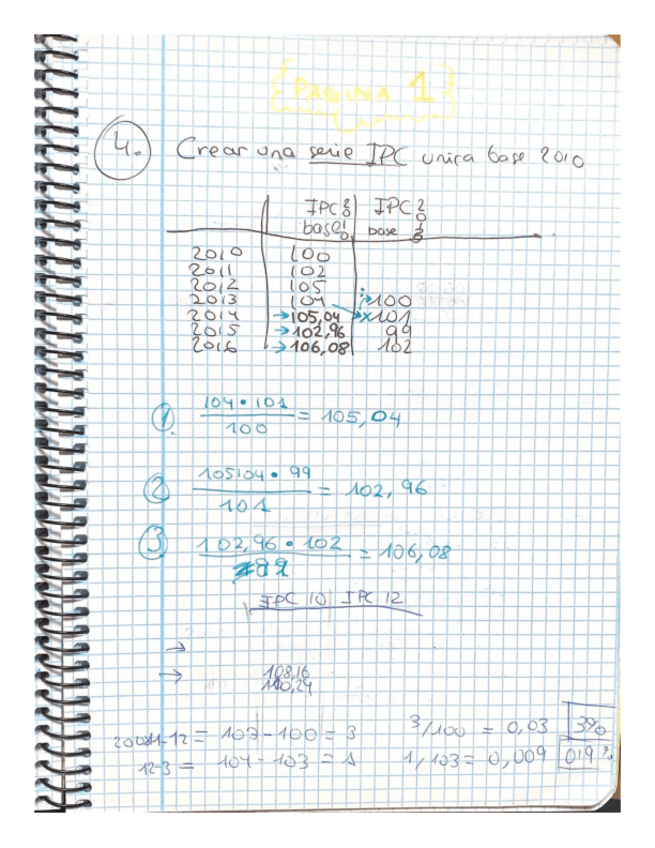 PAGINA 1
4. Crear una serie IPC unica base 2010
IPC 2010 IPC 20
base base
2010 100
2011 102
2012 105
2013 104 100
2014 →105,04 x101
2015 →102,96 99
2016 →106,08 102
1. 104 • 101 / 100 = 105,04
2 105,04 • 99 / 101 = 102,96
3 102,96 • 102 / = 106,08
IPC 10 | IPC 12
→
→ 108,16
110,24
11-12 = 103 - 100 = 3 3/100 = 0,03 3%
12-3 = 104 - 103 = 1 1/103 = 0,009 0,9%